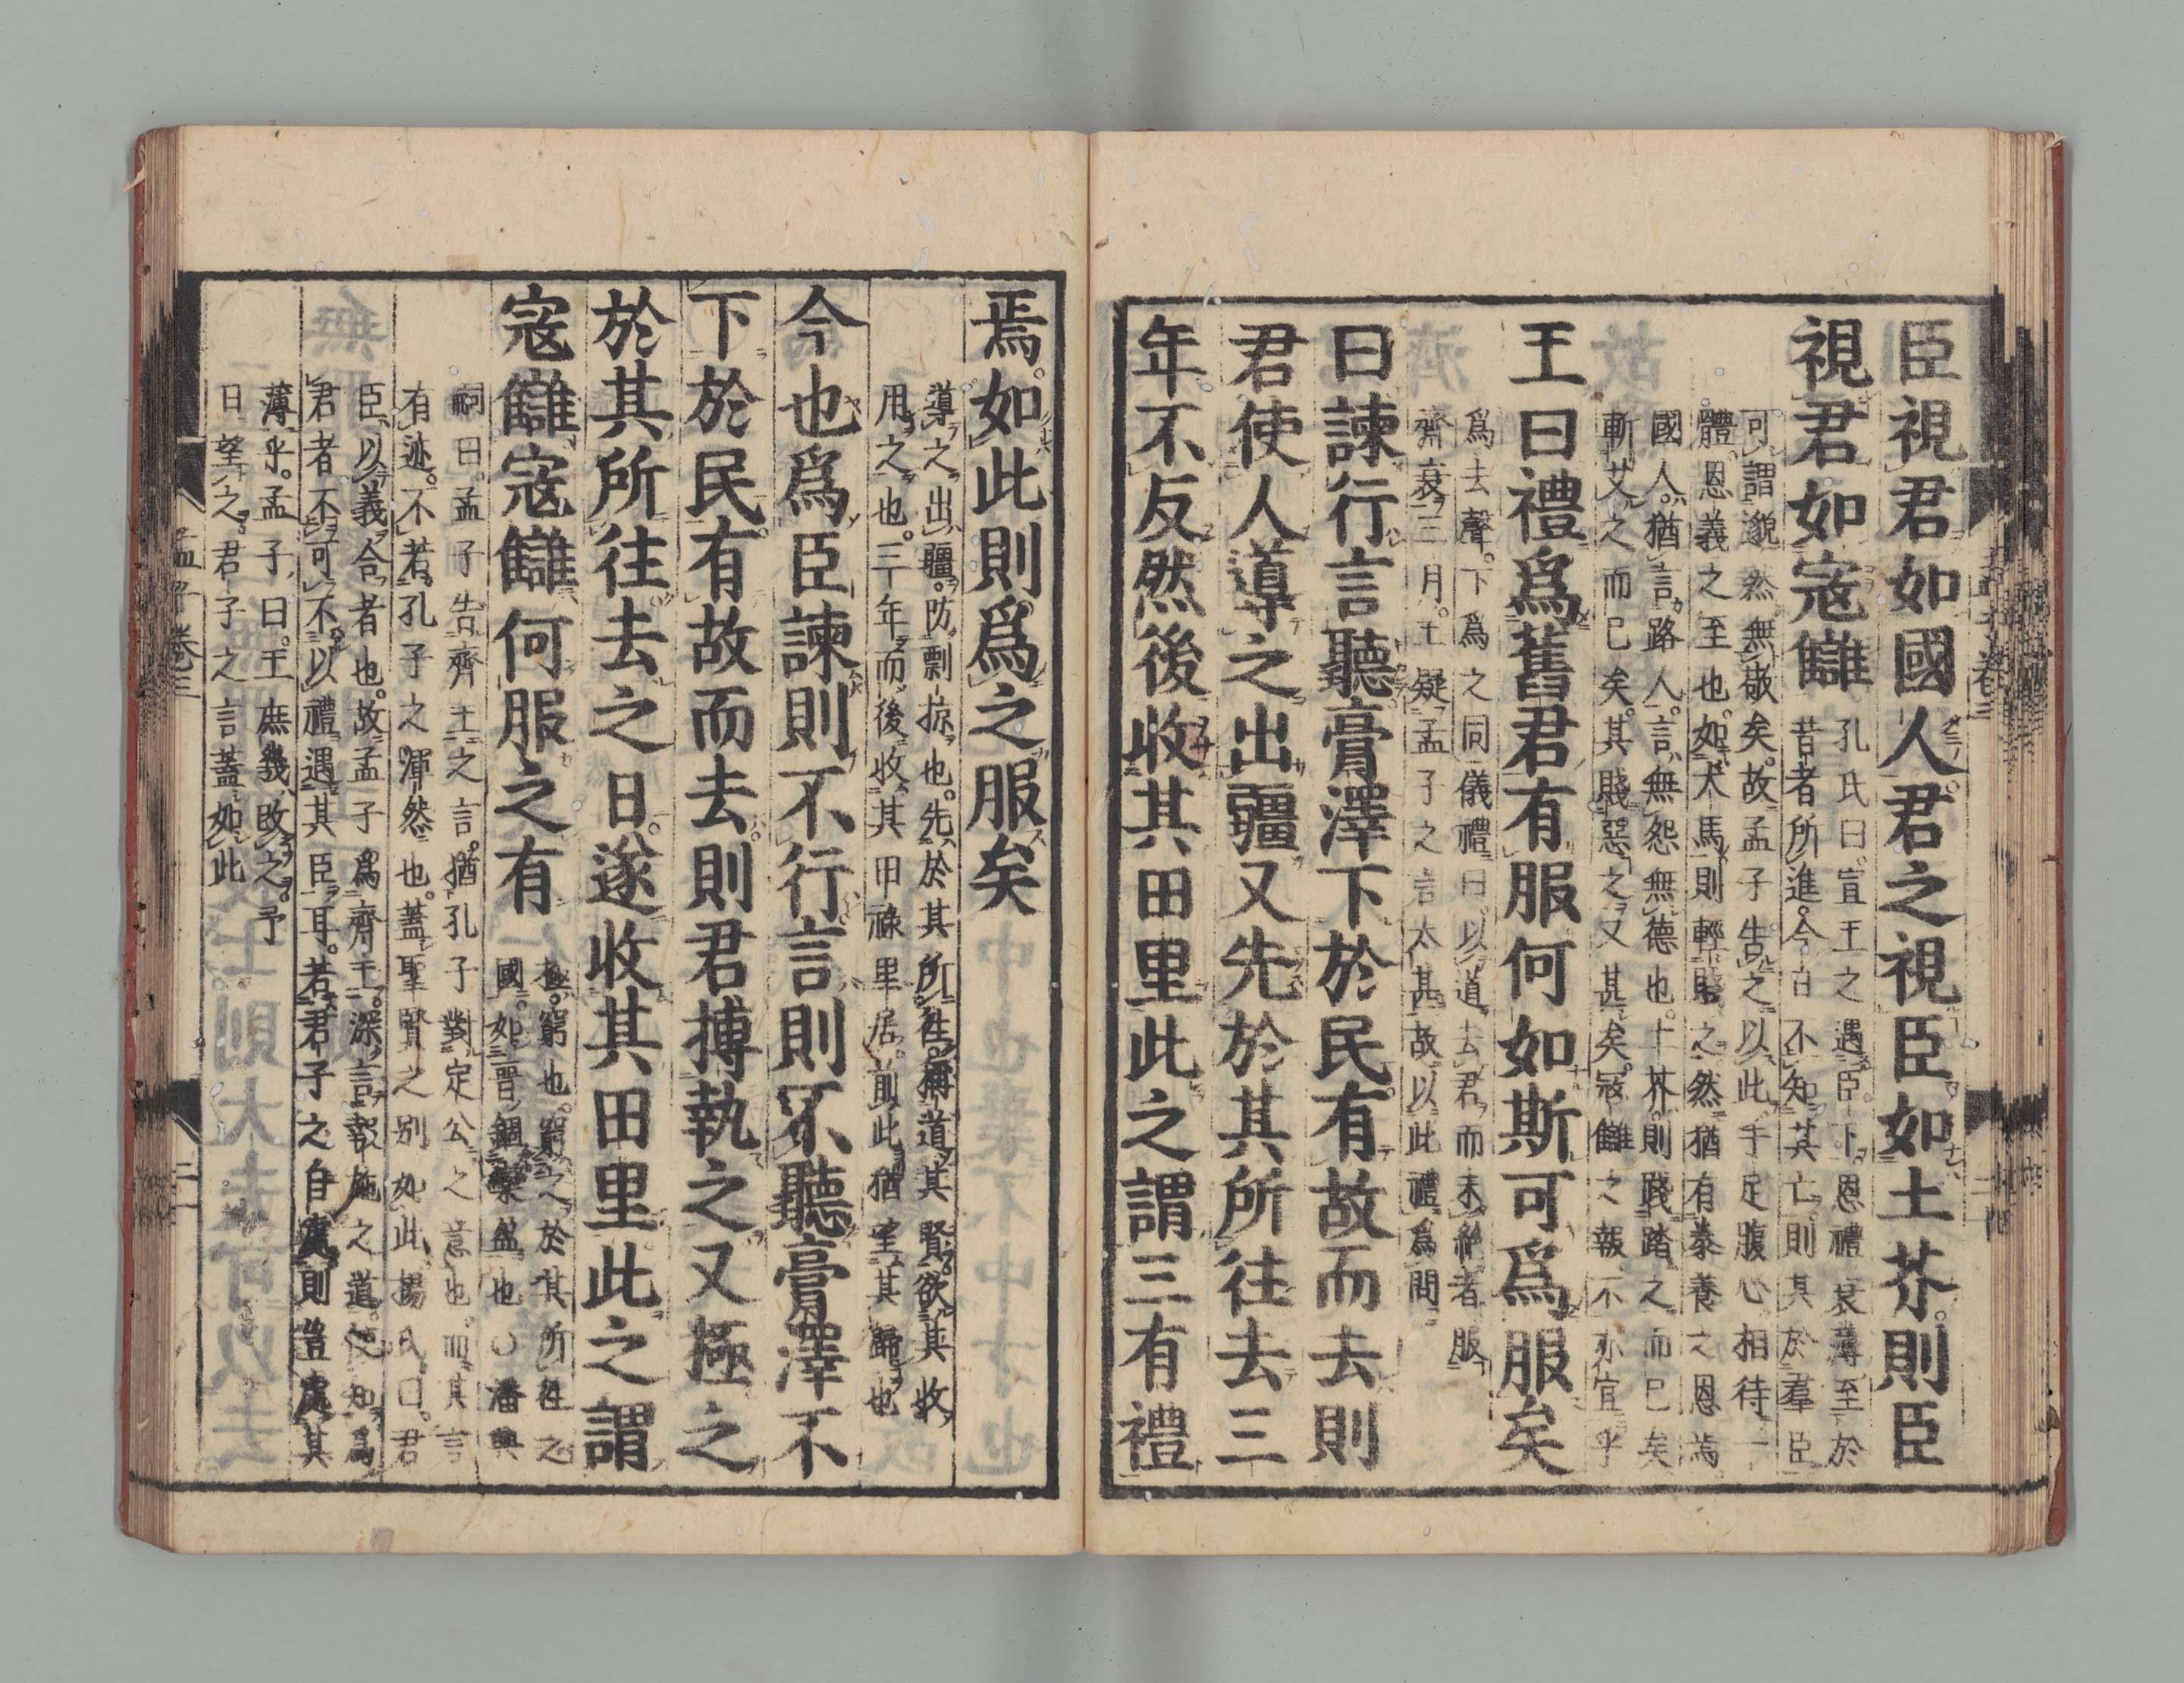 臣視君如國人君之視臣如土芥則臣
視君如寇讎
孔氏曰宣王之遇臣下恩禮衰薄至於
昔者所進今日不知其亡則其於羣臣
可謂邈然無敬矣故孟子告之以此手足腹心相待一
體恩義之至也如犬馬則輕賤之然猶有豢養之恩焉
國人猶言路人言無怨無德也土芥則踐踏之而已矣
斬艾之而已矣其賤惡之又甚矣寇讎之報不亦宜乎
王曰禮爲舊君有服何如斯可爲服矣
爲去聲下爲之同儀禮曰以道去君而未絶者服
齊衰三月王疑孟子之言太甚故以此禮爲問
曰諫行言聽膏澤下於民有故而去則
君使人導之出疆又先於其所往去三
年不反然後收其田里此之謂三有禮
焉如此則爲之服矣
導之出疆防剽掠也先於其所往稱道其賢欲其收
用之也三年而後收其田祿里居前此猶望其歸也
今也爲臣諫則不行言則不聽膏澤不
下於民有故而去則君搏執之又極之
於其所往去之日遂收其田里此之謂
寇讎寇讎何服之有
極窮也窮之於其所往之
國如晉錮欒盈也○潘興
嗣曰孟子告齊王之言猶孔子對定公之意也而其言
有迹不若孔子之渾然也蓋聖賢之別如此楊氏曰君
臣以義合者也故孟子爲齊王深言報施之道使知爲
君者不可不以禮遇其臣耳若君子之自處則豈處其
薄乎孟子曰王庶幾改之予
日望之君子之言蓋如此
孟子卷三